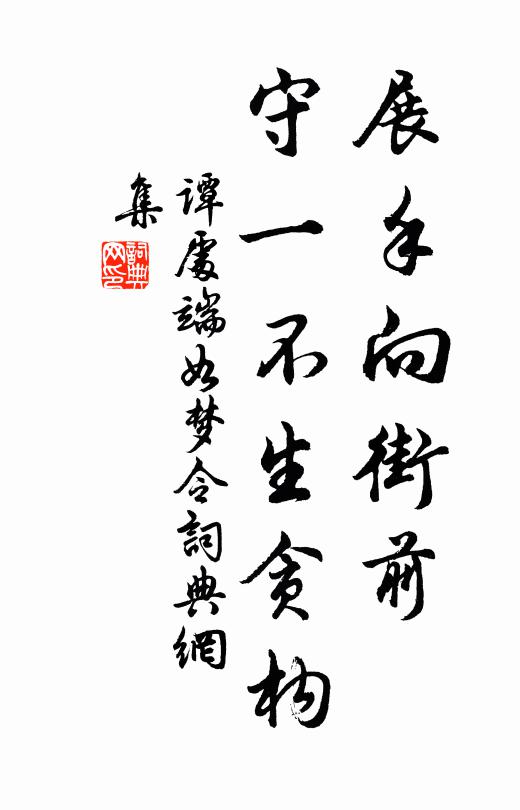 展手向街前
守一不生貪构
譚處端如梦令詞典網
集
詞典網印